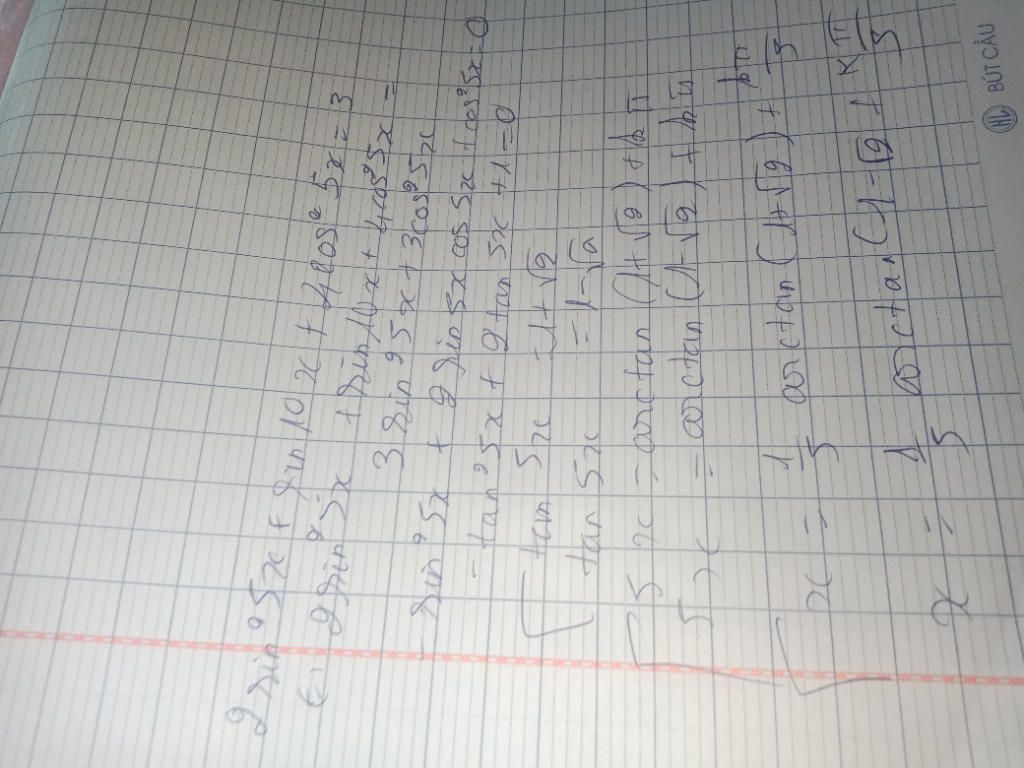 2 sin²5x + sin 10x + 4 cos² 5x = 3
(=) 2 sin² 5x + sin 10x + 4 cos² 5x =
3 sin² 5x + 3 cos² 5x
- sin² 5x + 2 sin 5x cos 5x + cos² 5x = 0
- tan² 5x + 2 tan 5x + 1 = 0
[ tan 5x = 1 + √2
tan 5x = 1 - √2
[ 5x = arctan (1 + √2) + kπ
5x = arctan (1 - √2) + kπ
[ x = 1/5 arctan (1 + √2) + kπ/3
x = 1/5 arctan (1 - √2 + kπ/3
BÚT CẦU